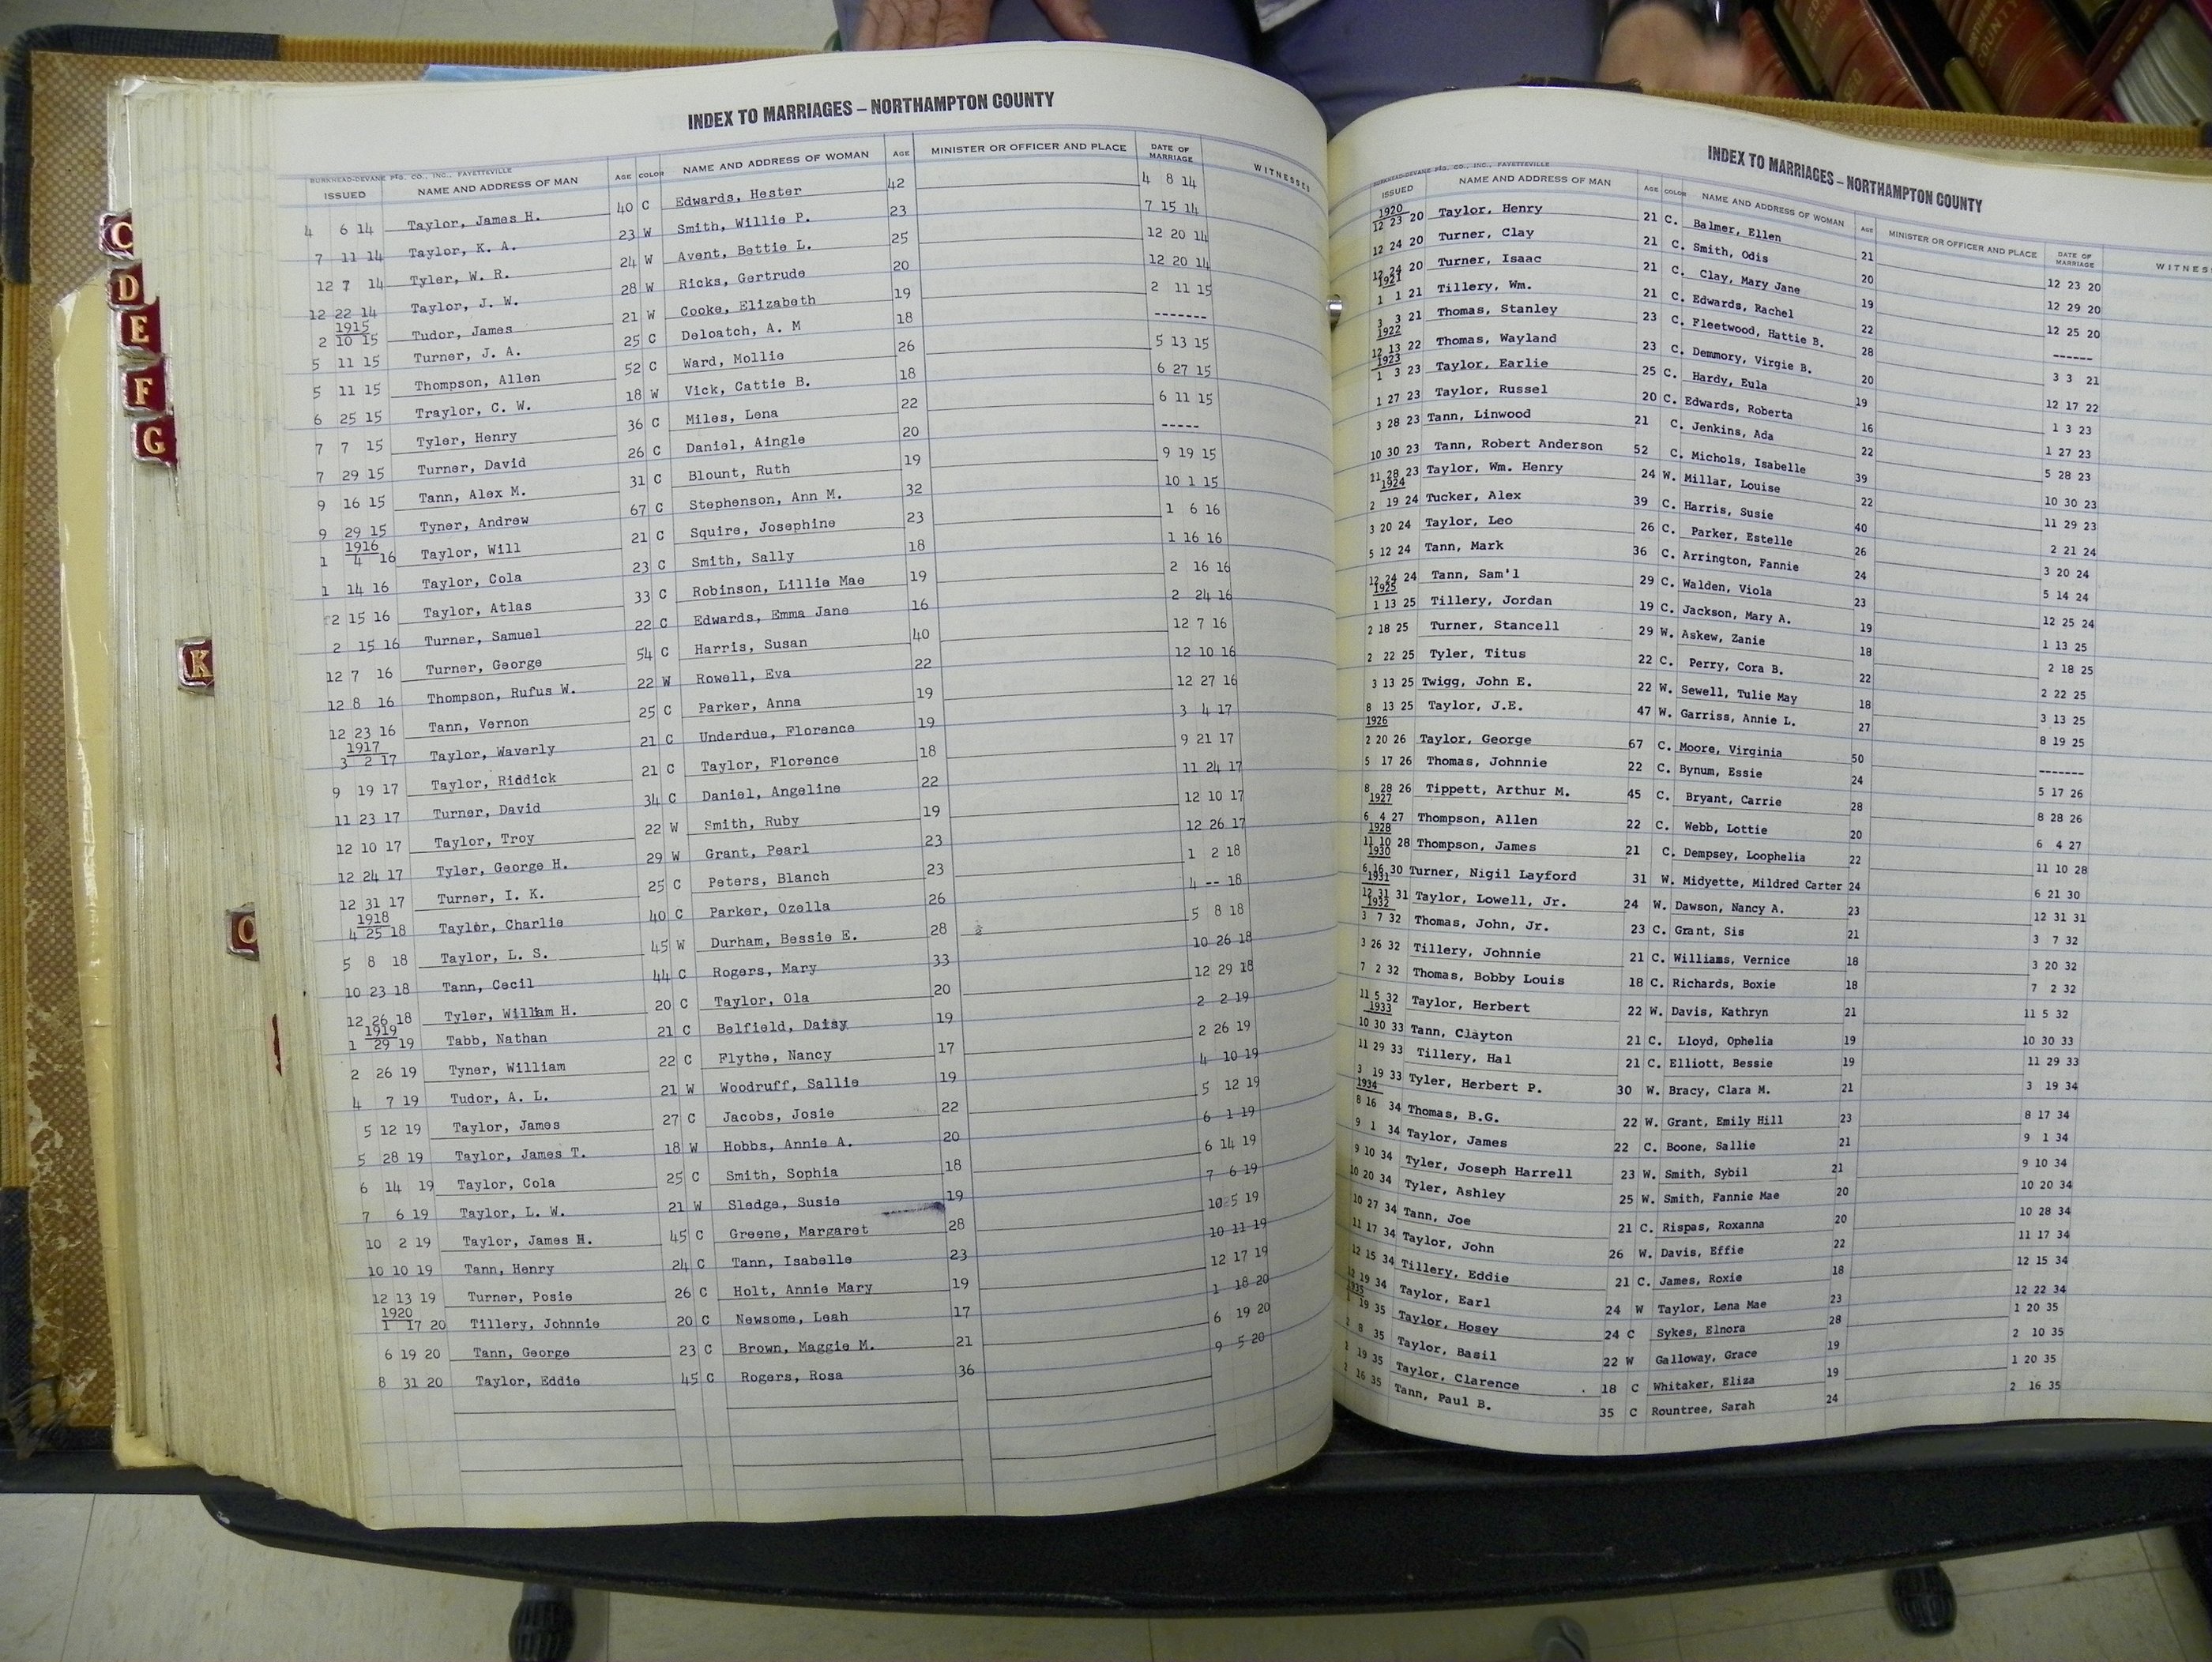 INDEX TO MARRIAGES – NORTHAMPTON COUNTY
BURKHEAD-DEVANE PTG. CO., INC., FAYETTEVILLE
ISSUED NAME AND ADDRESS OF MAN AGE COLOR NAME AND ADDRESS OF WOMAN AGE MINISTER OR OFFICER AND PLACE DATE OF MARRIAGE WITNESSES
4 6 14 Taylor, James H. 40 C Edwards, Hester 42 4 8 14
7 11 14 Taylor, K. A. 23 W Smith, Willie P. 23 7 15 14
12 7 14 Tyler, W. R. 24 W Avent, Bettie L. 25 12 20 14
12 22 14 Taylor, J. W. 28 W Ricks, Gertrude 20 12 20 14
1915
2 10 15 Tudor, James 21 W Cooke, Elizabeth 19 2 11 15
5 11 15 Turner, J. A. 25 C Deloatch, A. M 18 -------
5 11 15 Thompson, Allen 52 C Ward, Mollie 26 5 13 15
6 25 15 Traylor, C. W. 18 W Vick, Cattie B. 18 6 27 15
7 7 15 Tyler, Henry 36 C Miles, Lena 22 6 11 15
7 29 15 Turner, David 26 C Daniel, Aingle 20 -----
9 16 15 Tann, Alex M. 31 C Blount, Ruth 19 9 19 15
9 29 15 Tyner, Andrew 67 C Stephenson, Ann M. 32 10 1 15
1916
1 4 16 Taylor, Will 21 C Squire, Josephine 23 1 6 16
1 14 16 Taylor, Cola 23 C Smith, Sally 18 1 16 16
2 15 16 Taylor, Atlas 33 C Robinson, Lillie Mae 19 2 16 16
2 15 16 Turner, Samuel 22 C Edwards, Emma Jane 16 2 24 16
12 7 16 Turner, George 54 C Harris, Susan 40 12 7 16
12 8 16 Thompson, Rufus W. 22 W Rowell, Eva 22 12 10 16
12 23 16 Tann, Vernon 25 C Parker, Anna 19 12 27 16
1917
3 2 17 Taylor, Waverly 21 C Underdue, Florence 19 3 4 17
9 19 17 Taylor, Riddick 21 C Taylor, Florence 18 9 21 17
11 23 17 Turner, David 34 C Daniel, Angeline 22 11 24 17
12 10 17 Taylor, Troy 22 W Smith, Ruby 19 12 10 17
12 24 17 Tyler, George H. 29 W Grant, Pearl 23 12 26 17
12 31 17 Turner, I. K. 25 C Peters, Blanch 23 1 2 18
1918
4 25 18 Taylor, Charlie 40 C Parker, Ozella 26 4 -- 18
5 8 18 Taylor, L. S. 45 W Durham, Bessie E. 28 5 8 18
10 23 18 Tann, Cecil 44 C Rogers, Mary 33 10 26 18
12 26 18 Tyler, William H. 20 C Taylor, Ola 20 12 29 18
1919
1 29 19 Tabb, Nathan 21 C Belfield, Daisy 19 2 2 19
2 26 19 Tyner, William 22 C Flythe, Nancy 17 2 26 19
4 7 19 Tudor, A. L. 21 W Woodruff, Sallie 19 4 10 19
5 12 19 Taylor, James 27 C Jacobs, Josie 22 5 12 19
5 28 19 Taylor, James T. 18 W Hobbs, Annie A. 20 6 1 19
6 14 19 Taylor, Cola 25 C Smith, Sophia 18 6 14 19
7 6 19 Taylor, L. W. 21 W Sledge, Susie 19 7 6 19
10 2 19 Taylor, James H. 45 C Greene, Margaret 28 10 5 19
10 10 19 Tann, Henry 24 C Tann, Isabelle 23 10 11 19
12 13 19 Turner, Posie 26 C Holt, Annie Mary 19 12 17 19
1920
1 17 20 Tillery, Johnnie 20 C Newsome, Leah 17 1 18 20
6 19 20 Tann, George 23 C Brown, Maggie M. 21 6 19 20
8 31 20 Taylor, Eddie 45 C Rogers, Rosa 36 9 5 20
INDEX TO MARRIAGES – NORTHAMPTON COUNTY
BURKHEAD-DEVANE PTG. CO., INC., FAYETTEVILLE
ISSUED NAME AND ADDRESS OF MAN AGE COLOR NAME AND ADDRESS OF WOMAN AGE MINISTER OR OFFICER AND PLACE DATE OF MARRIAGE
1920
12 23 20 Taylor, Henry 21 C. Balmer, Ellen 21 12 23 20
12 24 20 Turner, Clay 21 C. Smith, Odis 20 12 29 20
12 24 20 Turner, Isaac 21 C. Clay, Mary Jane 19 12 25 20
1921
1 1 21 Tillery, Wm. 21 C. Edwards, Rachel 22 ------
3 3 21 Thomas, Stanley 23 C. Fleetwood, Hattie B. 28 3 3 21
1922
12 13 22 Thomas, Wayland 23 C. Demmory, Virgie B. 20 12 17 22
1923
1 3 23 Taylor, Earlie 25 C. Hardy, Eula 19 1 3 23
1 27 23 Taylor, Russel 20 C. Edwards, Roberta 16 1 27 23
3 28 23 Tann, Linwood 21 C. Jenkins, Ada 22 5 28 23
10 30 23 Tann, Robert Anderson 52 C. Michols, Isabelle 39 10 30 23
11 28 23 Taylor, Wm. Henry 24 W. Millar, Louise 22 11 29 23
1924
2 19 24 Tucker, Alex 39 C. Harris, Susie 40 2 21 24
3 20 24 Taylor, Leo 26 C. Parker, Estelle 26 3 20 24
5 12 24 Tann, Mark 36 C. Arrington, Fannie 24 5 14 24
12 24 24 Tann, Sam'l 29 C. Walden, Viola 23 12 25 24
1925
1 13 25 Tillery, Jordan 19 C. Jackson, Mary A. 19 1 13 25
2 18 25 Turner, Stancell 29 W. Askew, Zanie 18 2 18 25
2 22 25 Tyler, Titus 22 C. Perry, Cora B. 22 2 22 25
3 13 25 Twigg, John E. 22 W. Sewell, Tulie May 18 3 13 25
8 13 25 Taylor, J.E. 47 W. Garriss, Annie L. 27 8 19 25
1926
2 20 26 Taylor, George 67 C. Moore, Virginia 50 -------
5 17 26 Thomas, Johnnie 22 C. Bynum, Essie 24 5 17 26
8 28 26 Tippett, Arthur M. 45 C. Bryant, Carrie 28 8 28 26
1927
6 4 27 Thompson, Allen 22 C. Webb, Lottie 20 6 4 27
1928
11 10 28 Thompson, James 21 C. Dempsey, Loophelia 22 11 10 28
1930
6 16 30 Turner, Nigil Layford 31 W. Midyette, Mildred Carter 24 6 21 30
1931
12 31 31 Taylor, Lowell, Jr. 24 W. Dawson, Nancy A. 23 12 31 31
1932
3 7 32 Thomas, John, Jr. 23 C. Grant, Sis 21 3 7 32
3 26 32 Tillery, Johnnie 21 C. Williams, Vernice 18 3 20 32
7 2 32 Thomas, Bobby Louis 18 C. Richards, Boxie 18 7 2 32
11 5 32 Taylor, Herbert 22 W. Davis, Kathryn 21 11 5 32
1933
10 30 33 Tann, Clayton 21 C. Lloyd, Ophelia 19 10 30 33
11 29 33 Tillery, Hal 21 C. Elliott, Bessie 19 11 29 33
3 19 33 Tyler, Herbert P. 30 W. Bracy, Clara M. 21 3 19 34
1934
8 16 34 Thomas, B.G. 22 W. Grant, Emily Hill 23 8 17 34
9 1 34 Taylor, James 22 C. Boone, Sallie 21 9 1 34
9 10 34 Tyler, Joseph Harrell 23 W. Smith, Sybil 21 9 10 34
10 20 34 Tyler, Ashley 25 W. Smith, Fannie Mae 20 10 20 34
10 27 34 Tann, Joe 21 C. Rispas, Roxanna 20 10 28 34
11 17 34 Taylor, John 26 W. Davis, Effie 22 11 17 34
12 15 34 Tillery, Eddie 21 C. James, Roxie 18 12 15 34
12 19 34 Taylor, Earl 24 W Taylor, Lena Mae 23 12 22 34
1935
1 19 35 Taylor, Hosey 24 C Sykes, Elnora 28 1 20 35
8 35 Taylor, Basil 22 W Galloway, Grace 19 2 10 35
19 35 Taylor, Clarence 18 C Whitaker, Eliza 19 1 20 35
16 35 Tann, Paul B. 35 C Rountree, Sarah 24 2 16 35
C
D
E
F
G
K